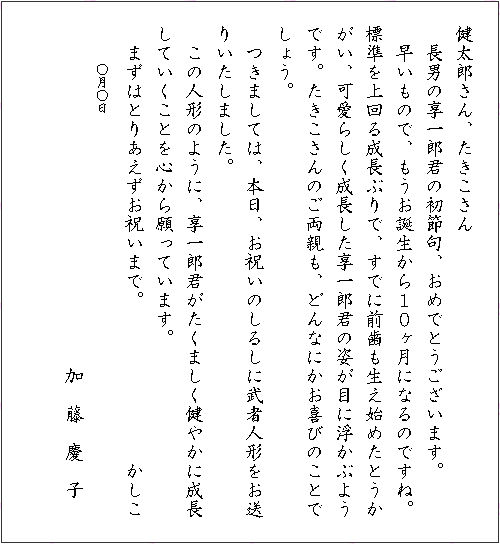 健太郎さん、たきこさん
長男の享一郎君の初節句、おめでとうございます。
早いもので、もうお誕生から１０ヶ月になるのですね。
標準を上回る成長ぶりで、すでに前歯も生え始めたとうか
がい、可愛らしく成長した享一郎君の姿が目に浮かぶよう
です。たきこさんのご両親も、どんなにかお喜びのことで
しょう。
つきましては、本日、お祝いのしるしに武者人形をお送
りいたしました。
この人形のように、享一郎君がたくましく健やかに成長
していくことを心から願っています。
まずはとりあえずお祝いまで。
かしこ
〇月〇日
加藤慶子